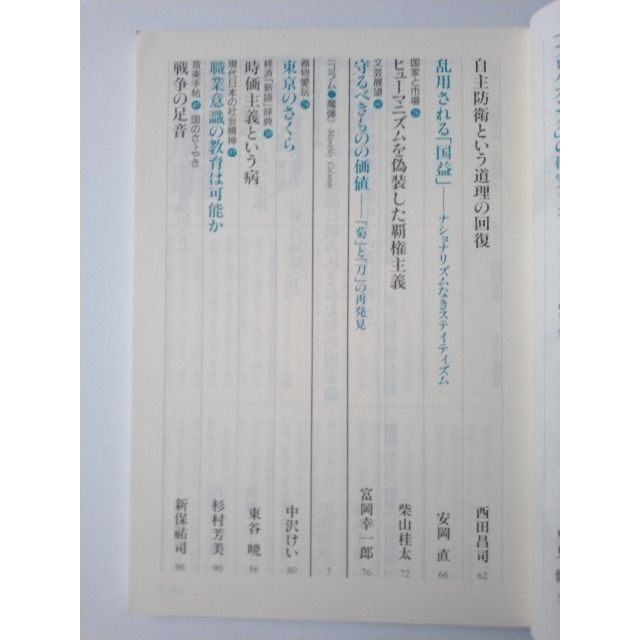 自主防衛という道理の回復
西田昌司 62
乱用される「国益」——ナショナリズムなきステイティズム
安岡 直 66
国家と市場
ヒューマニズムを偽装した覇権主義
柴山桂太 72
文芸展望
守るべきものの価値——「菊」と「刀」の再発見
富岡幸一郎 76
〈コラム・魔弾〉 Monthly Column
7
器物愛玩
東京のさくら
中沢けい 80
経済「新語」辞典
時価主義という病
東谷 暁 86
現代日本の社会精神
職業意識の教育は可能か
杉村芳美 90
音楽手帖 国のさゝやき
戦争の足音
新保祐司 96